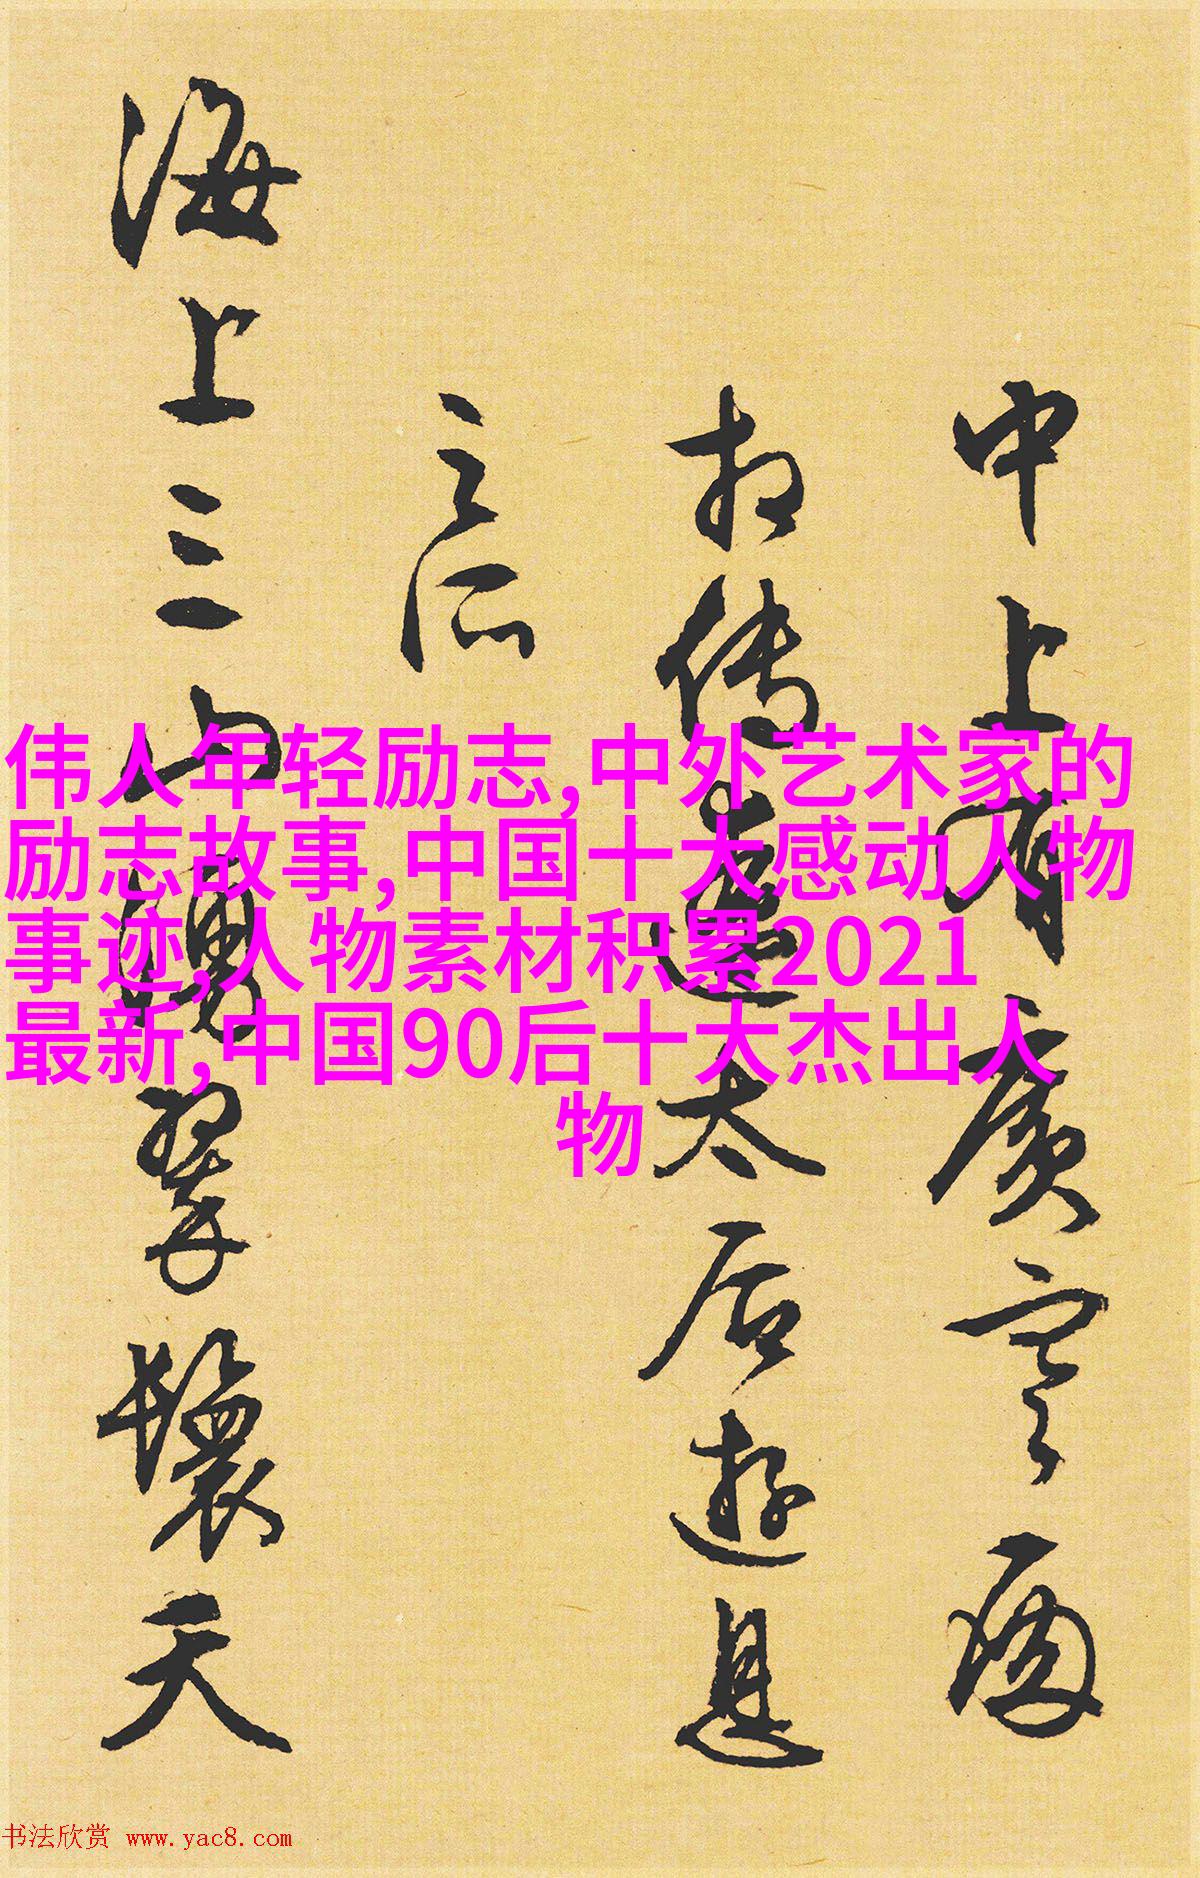 中上有廣寒
相傳遼太后遊息
之所
海上三山擁翠鬟天
伟人年轻励志,中外艺术家的
励志故事,中国十大感动人物
事迹,人物素材积累2021
最新,中国90后十大杰出人
物
书法欣赏 www.yac8.com